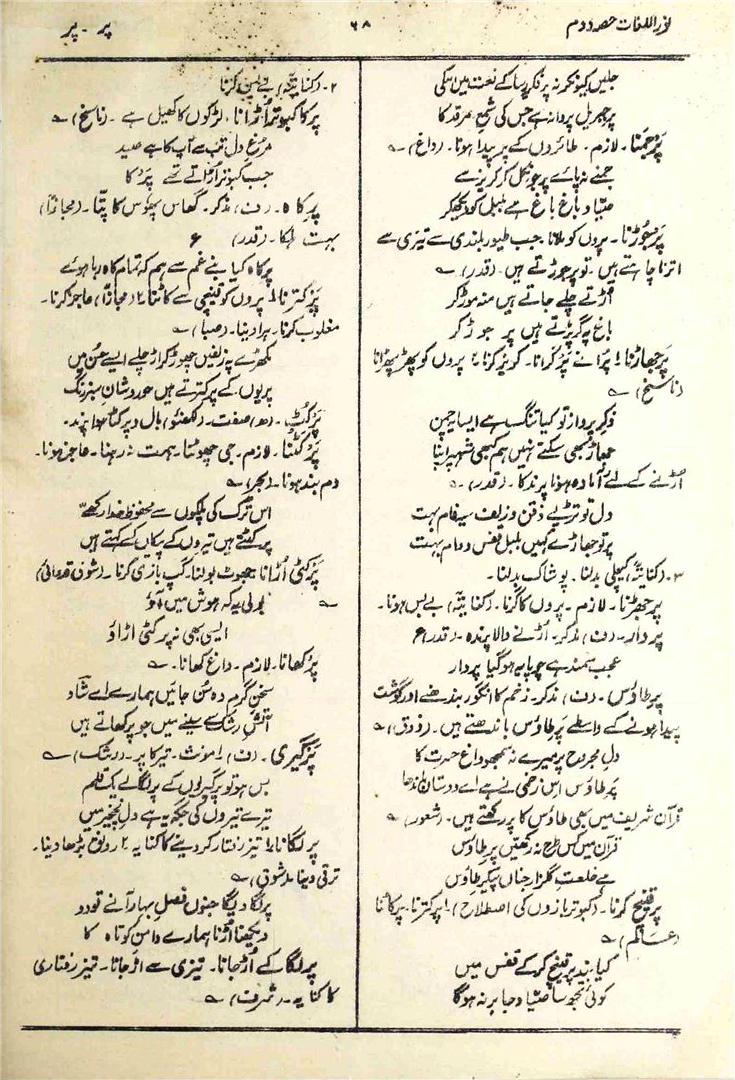 نور اللغات حصہ دوم
۶۸
پر - پر
جلیں کیونکر نہ پر فکر رسا کے نعت میں اسکی
پر جبریل پروانہ ہے جس کی شمع مرقد کا
پر جمنا ۔ لازم ۔ طائروں کے پر پیدا ہونا ۔ (داغ) ؎
جمنے نہ پائے پر جو نکل کر گر پڑے
صیاد باغ باغ ہے بلبل کو دیکھ کر
پر جوڑنا ۔ پروں کو ملانا جب طیور بلندی سے تیزی سے
اترنا چاہتے ہیں ۔ تو پر جوڑتے ہیں ۔ (قدر) ؎
اڑتے چلے جاتے ہیں منہ موڑ کر
باغ پہ گرتے ہیں پر جوڑ کر
پر جھاڑنا ۱ پرانے پر گرانا ۔ کریز کرنا ۲ پروں کو پھڑپھڑانا
(ناسخ) ؎
ذکر پرواز تو کیا تنگ ہے ایسا یہ چمن
جھاڑ بھی سکتے نہیں ہم کبھی شہپر اپنا
اڑنے کے لئے آمادہ ہونا پرند کا ۔ (قدر) ؎
دل تو تڑپے ذقن و زلف سیہ فام بہت
پر تو جھاڑے کہیں بلبل قفس و دام بہت
۳ ۔ (کنایتہً) کیچلی بدلنا ۔ پوشاک بدلنا ۔
پر جھڑنا ۔ لازم ۔ پروں کا گرنا ۔ (کنایتہً) بے بس ہونا ۔
پر دار ۔ (ف) مذکر ۔ اڑنے والا پرندہ ۔ (قدر) ع
عجب سمند ہے چوپایہ ہو گیا پردار
پر طاؤس ۔ (ف) مذکر ۔ زخم کا انگور بندھنے اور گوشت
پیدا ہونے کے واسطے پر طاؤس باندھتے ہیں ۔ (ذوق) ؎
دل مجروح پر میرے نہ سمجھو داغ حسرت کا
پر طاؤس اس زخمی نے ہے اے دوستاں باندھا
قرآن شریف میں بھی طاؤس کا پر رکھتے ہیں ۔ (شعور) ؎
قرآن میں کس طرح نہ رکھیں پر طاؤس
ہے خلعت گلزار جناں پیکر طاؤس
پر قینچ کرنا ۔ (کبوتر بازوں کی اصطلاح) ۱ پر کترنا ۔ پر کاٹنا
(عالم) ؎
کیا بند پر قینچ کر کے قفس میں
کوئی تجھ سا صیاد جابر نہ ہوگا
۲ ۔ (کنایتہً) بے بس کرنا
پر کا کبوتر اڑانا ۔ لڑکوں کا کھیل ہے ۔ (ناسخ) ؎
مرغ دل تب سے آپ کا ہے صید
جب کبوتر اڑاتے تھے پر کا
پر کاہ ۔ (ف) مذکر ۔ گھاس پھوس کا پتا ۔ (مجازاً)
بہت ہلکا ۔ (قدر) ع
پر کاہ کیا بنے غم سے ہم کہ تمام کاہ ربا ہوئے
پر کترنا ۱ پروں کو قینچی سے کاٹنا ۲ (مجازاً) عاجز کرنا ۔
مغلوب کرنا ۔ ہرا دینا ۔ (صبا) ؎
مکھڑے پہ زلفیں چھوڑ کر اڑ چلے ایسے حسن میں
پریوں کے پر کترتے ہیں حور وشان سبز رنگ
پر کٹ ۔ (ھ) صفت ۔ (لکھنؤ) بال و پر کٹا ہوا پرند ۔
پر کٹنا ۔ لازم ۔ جی چھوٹنا ۔ ہمت نہ رہنا ۔ عاجز ہونا ۔
دم بند ہونا ۔ (بحر) ؎
اس ترک کی پلکوں سے محفوظ خدا رکھے
پر کٹتے ہیں تیروں کے پیکاں کے کہتے ہیں
پر کٹی اڑانا جھوٹ بولنا ۔ گپ بازی کرنا ۔ (شوق قدوائی) ؎
بولی یہ کہ ہوش میں آؤ
ایسی بھی نہ پر کٹی اڑاؤ
پر کھانا ۔ لازم ۔ داغ کھانا ۔ ؎
سخن گرم وہ سن جائیں ہمارے اے شاد
آتش رشک سے سینے میں جو پر کھاتے ہیں
پر گیری ۔ (ف) مونث ۔ تیر کا پر ۔ (رشک) ؎
بس ہو تو پر گیروں کے پر لگالے یک قلم
تیرے تیروں کی جگہ یہ ہے دل نخچیر میں
پر لگانا ۱ تیز رفتار کر دینے کا کنایہ ۲ رونق بڑھا دینا ۔
ترقی دینا ۔ (شوق) ؎
پر لگا دیگا جنوں فصل بہار آنے تو دو
دیکھنا اڑنا ہمارے دامن کوتاہ کا
پر لگا کے اڑ جانا ۔ تیزی سے اڑ جانا ۔ تیز رفتاری
کا کنایہ ۔ (شرف) ؎